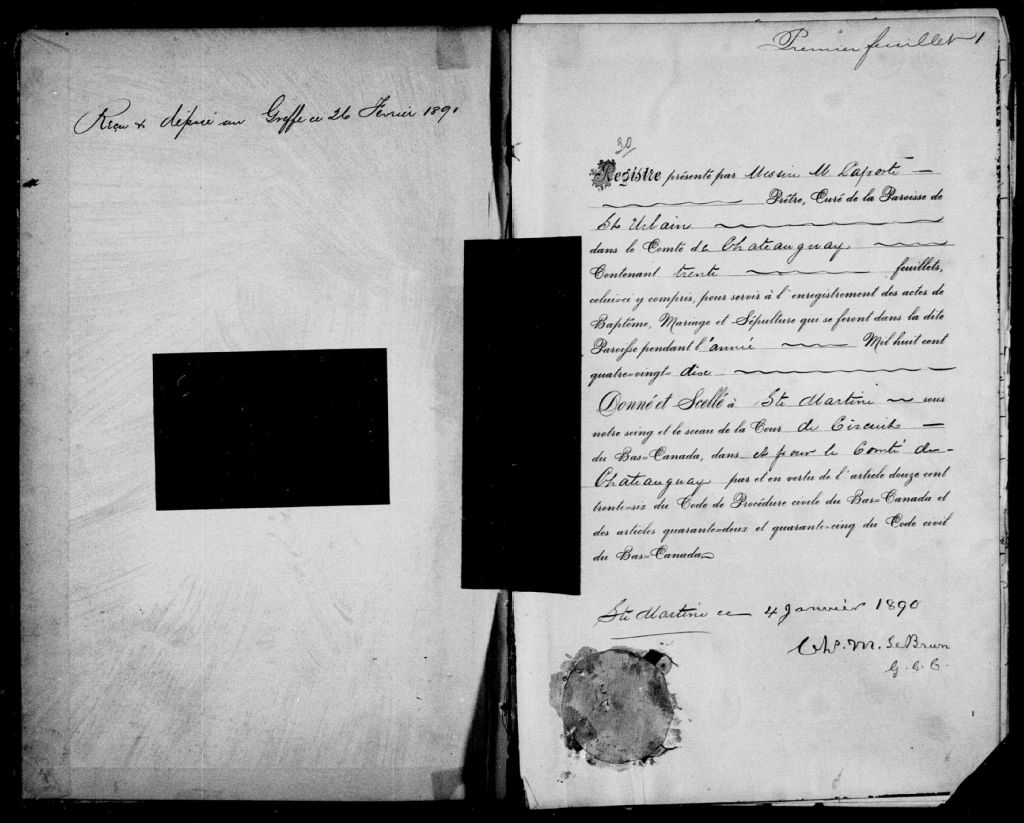 Reçu & déposé au Greffe ce 26 Février 1890
Premier feuillet 1
30
Registre présenté par Messire M Laporte
Prêtre, Curé de la Paroisse de
St Urbain
dans le Comté de Chateauguay
Contenant trente feuillets,
celui-ci y compris, pour servir à l'enregistrement des actes de
Baptême, Mariage et Sépulture qui se feront dans la dite
Paroisse pendant l'année Mil huit cent
quatre-vingt-dix
Donné et Scellé à Ste Martine sous
notre seing et le sceau de la Cour de Circuit
du Bas-Canada, dans et pour le Comté de
Chateauguay par et en vertu de l'article douze cent
trente-six du Code de Procédure civile du Bas-Canada et
des articles quarante-deux et quarante-cinq du Code civil
du Bas-Canada
Ste Martine ce 4 Janvier 1890
Chs. M. LeBrun
G. C. C.